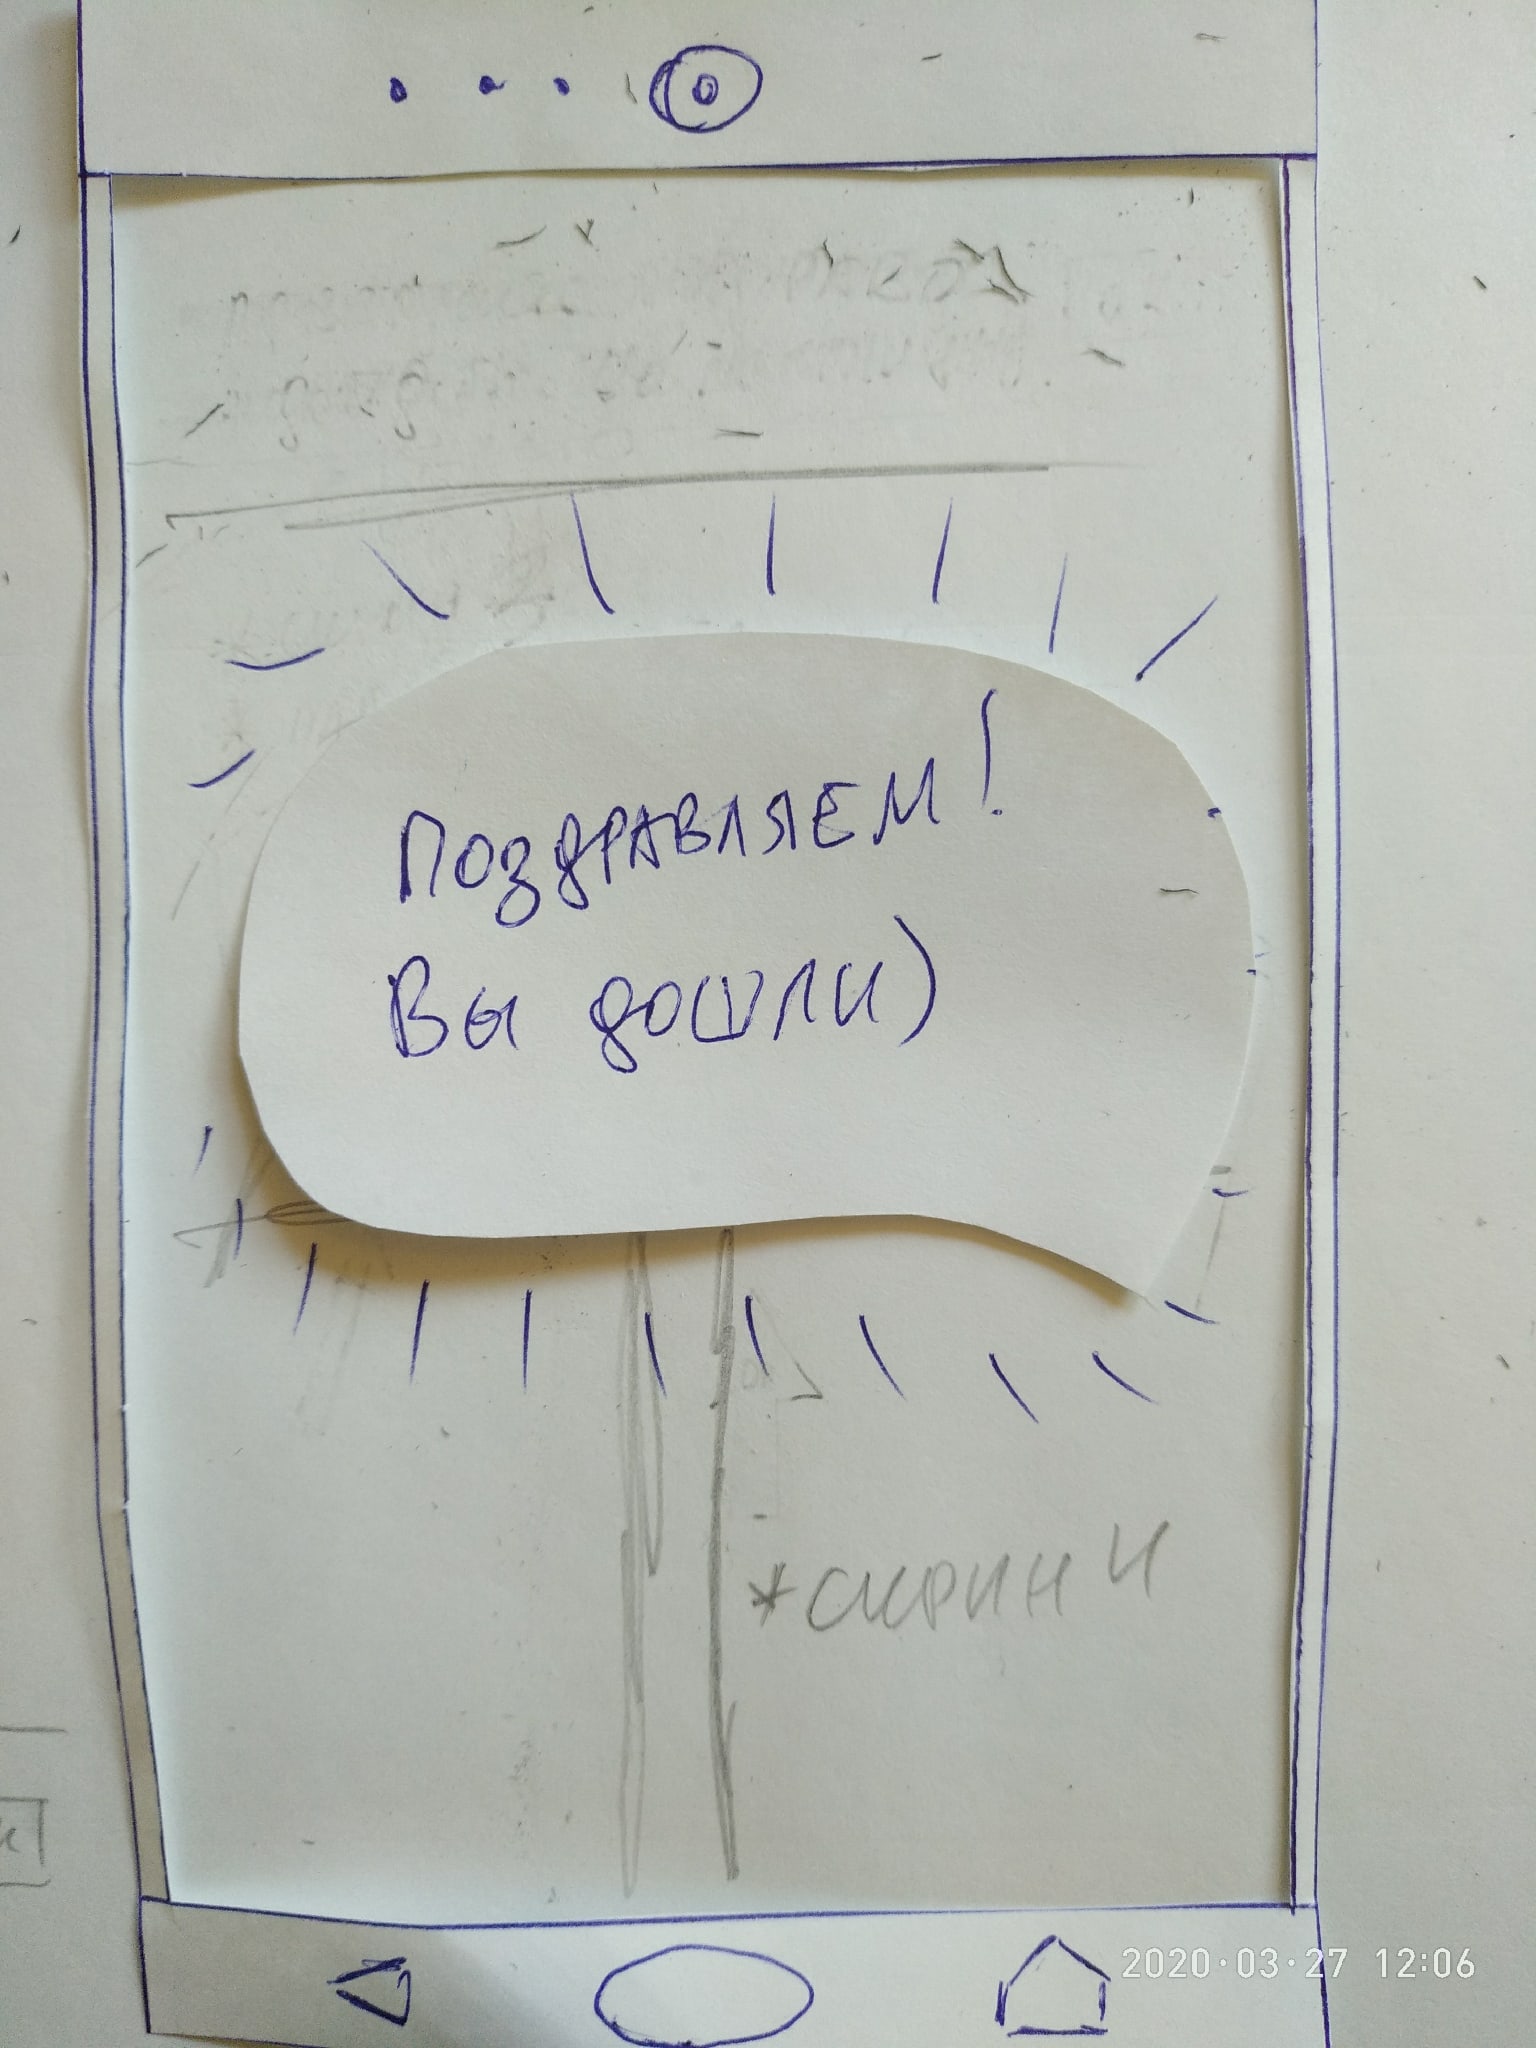 Поздравляем!
Вы дошли)
*скрин 4
2020·03·27 12:06